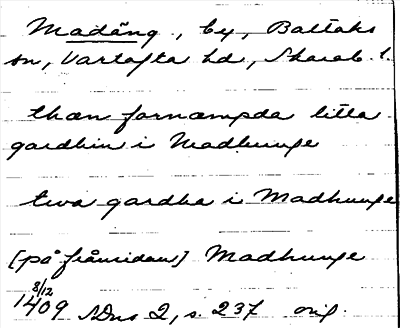 Madäng, by, Baltaks
sn, Vartofta hd, Skarab. l.
thæn fornæmpda litla
gardhin i Madhunge
twa gardha i Madhunge
[på frånsidan] Madhunge
8/12
1409 SDns 2, s. 237 orig.